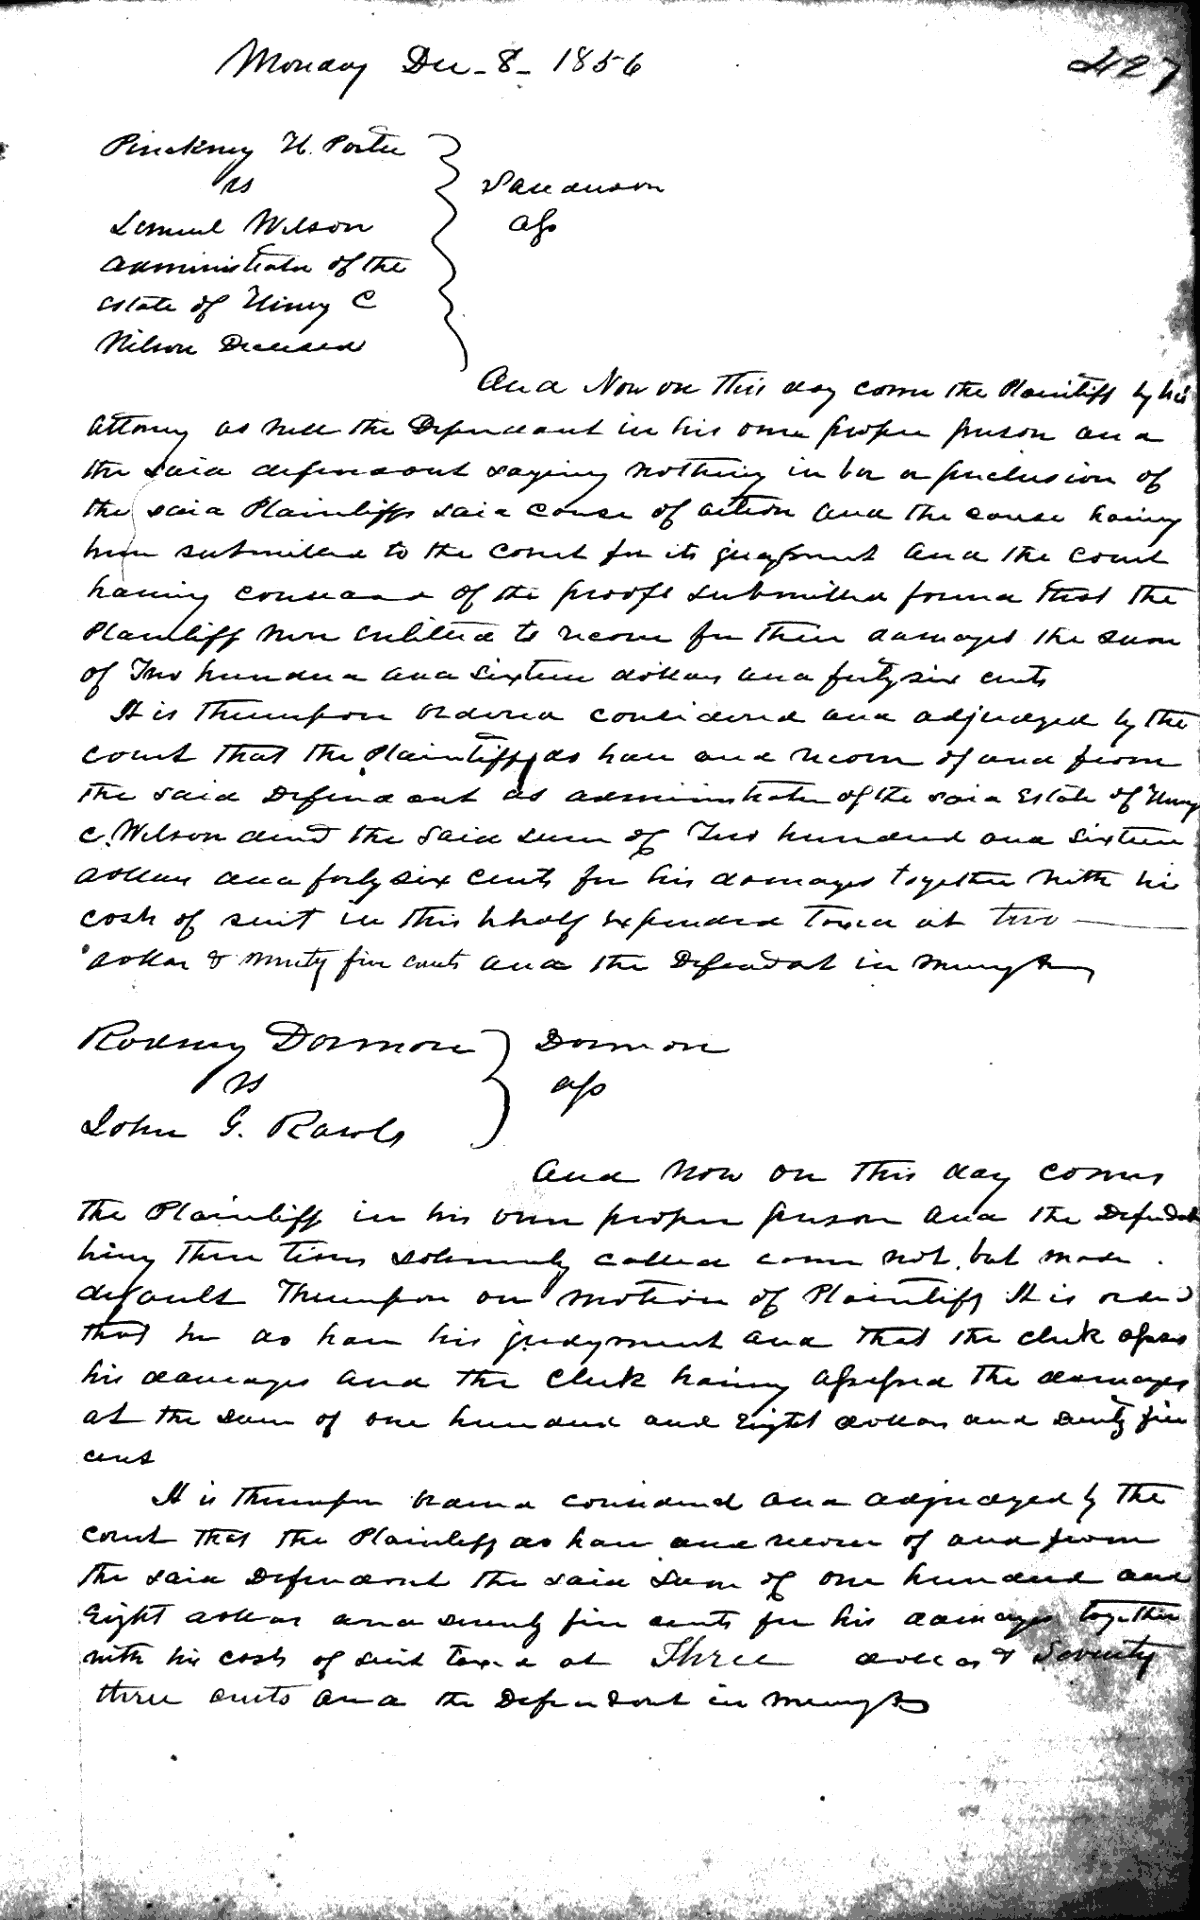 Monday Dec - 8 - 1856
427
Pinckney H. Porter
vs
Lemuel Wilson
administrator of the
Estate of Henry C
Wilson Deceased
Sanderson
afs
And Now on this day come the Plaintiff by his
attorney as well the Defendant in his own proper person and
the said defendant saying nothing in bar or preclusion of
the said Plaintiffs said cause of action and the cause having
been submitted to the court for its judgment and the court
having considered of the proofs submitted found that the
Plaintiff were entitled to recover for their damages the sum
of Two hundred and sixteen dollars and forty six cents
It is thereupon ordered considered and adjudged by the
court that the Plaintiff do have and recover of and from
the said Defendant as administrator of the said Estate of Henry
C. Wilson decd the said sum of Two hundred and sixteen
dollars and forty six cents for his damages together with his
costs of suit in this behalf expended taxed at two
dollar & ninety five cents and the Defendant in mercy &c
Rodney Dormon
vs
John G. Rawls
Dormon
afs
And Now on this day comes
the Plaintiff in his own proper person and the Defendant
being three times solemnly called came not, but made
default Thereupon on motion of Plaintiff It is orderd
that he do have his judgment and that the clerk assess
his damages and the Clerk having assessed the damages
at the sum of one hundred and Eight dollars and seventy five
cents
It is thereupon ordered considered and adjudged by the
court that the Plaintiff do have and recover of and from
the said Defendant the said sum of one hundred and
Eight dollars and seventy five cents for his damages together
with his costs of suit taxed at Three dollars & Seventy
three cents and the Defendant in mercy &c